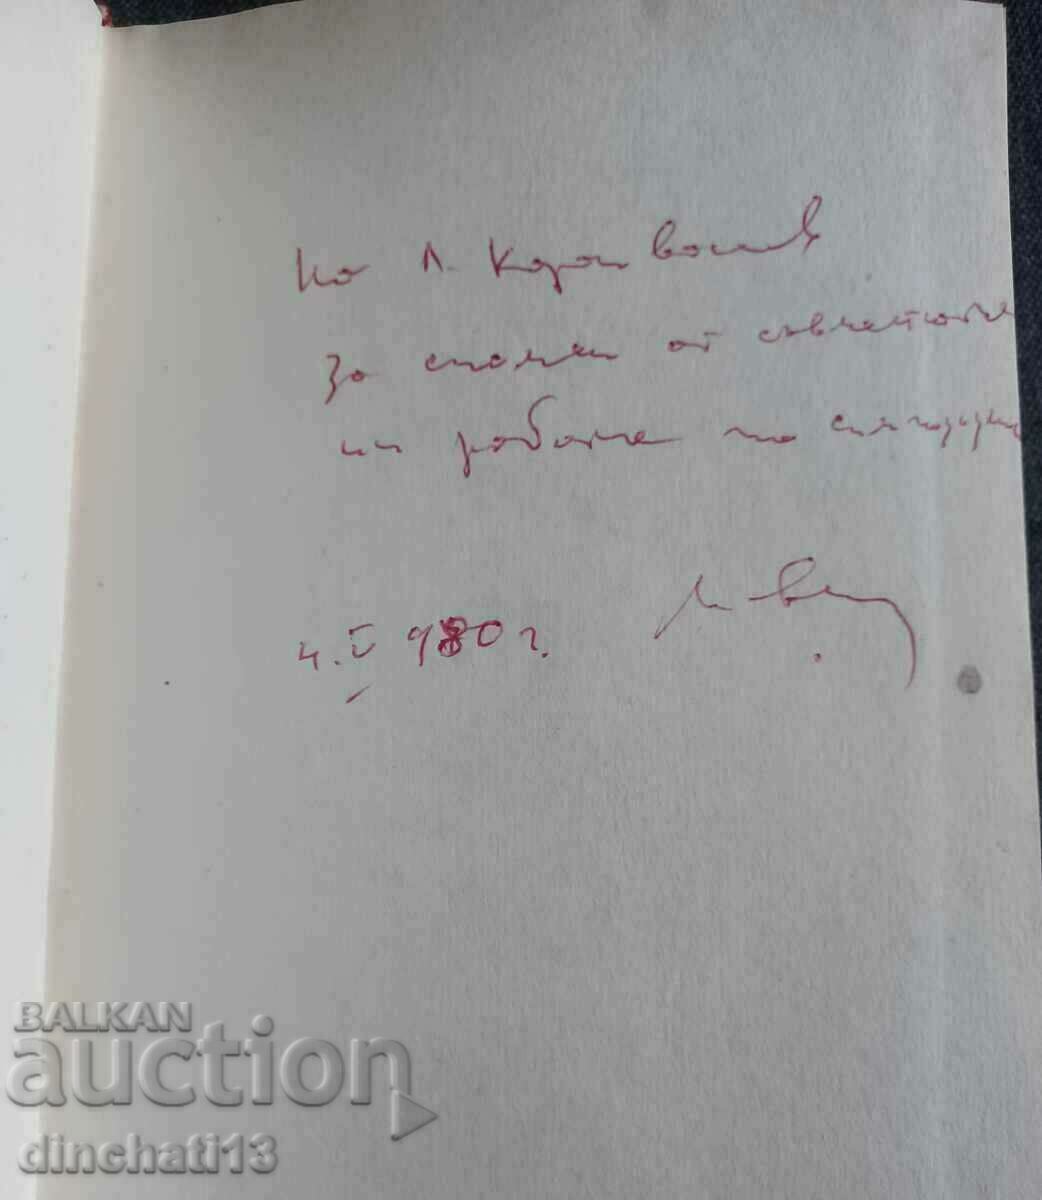 На Л. Каравасилев
За спомен от съвместната
ни работа по
4.V 980 г.
BALKAN
auction
dinchati13